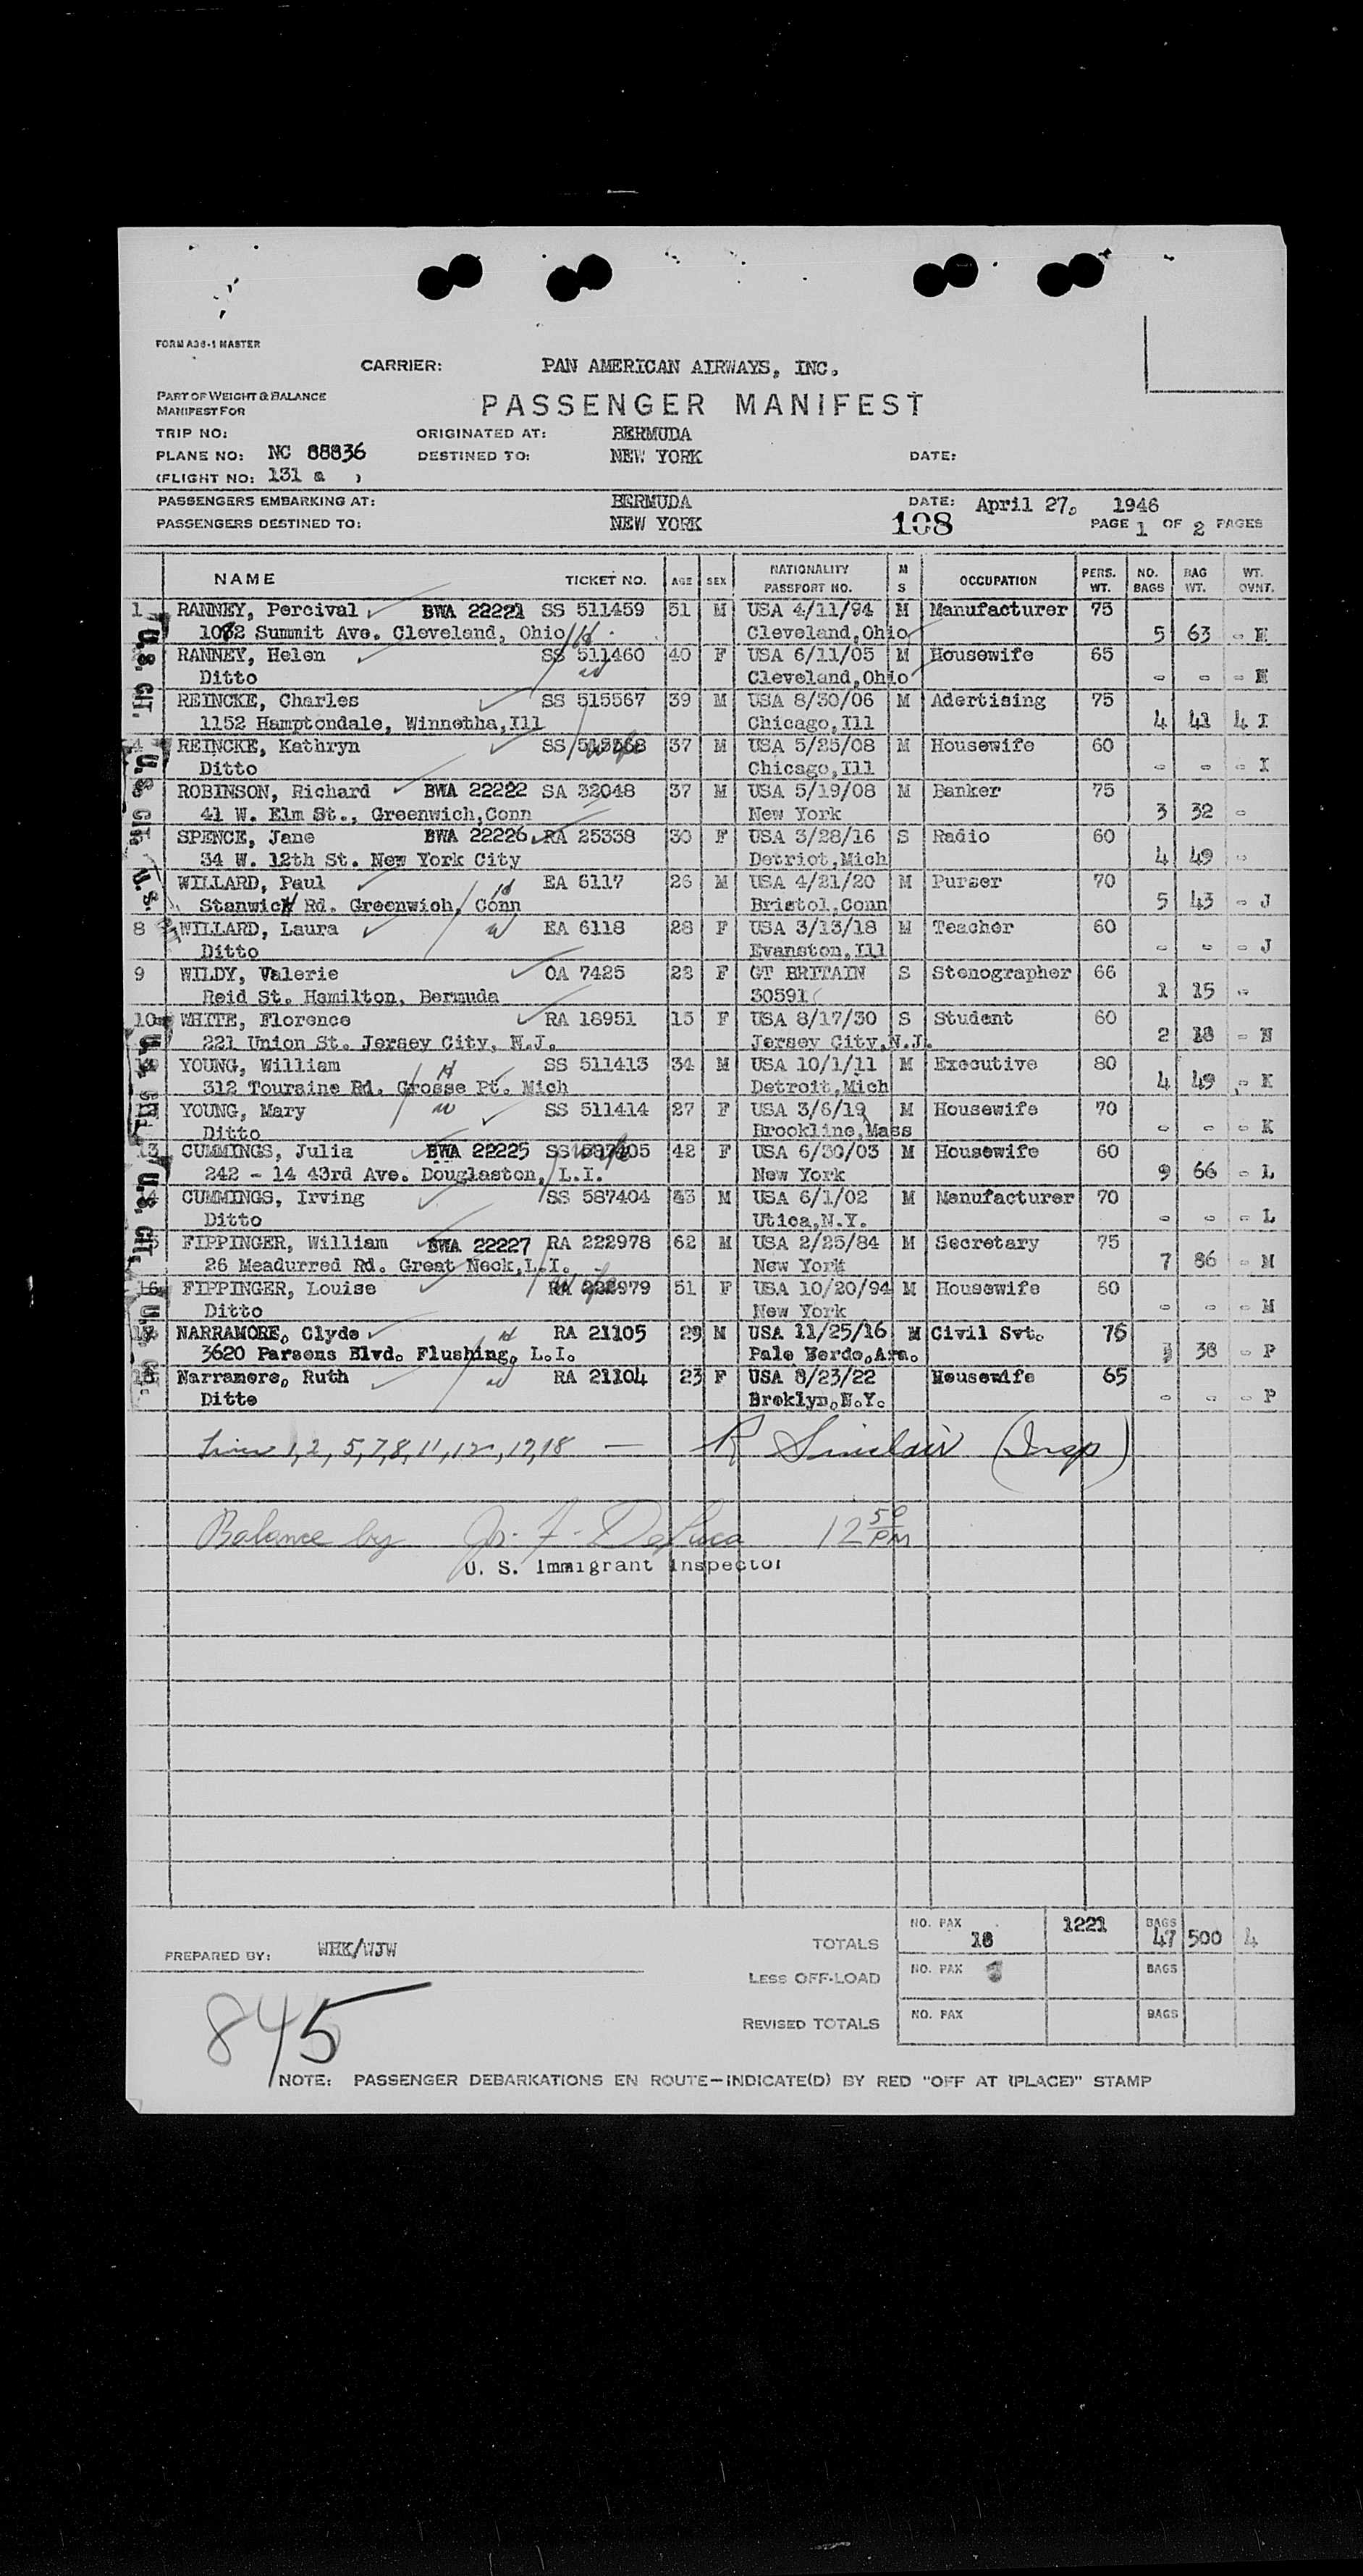 FORM A36-1 MASTER
CARRIER: PAN AMERICAN AIRWAYS, INC.
PART OF WEIGHT & BALANCE
MANIFEST FOR
PASSENGER MANIFEST
TRIP NO: ORIGINATED AT: BERMUDA
PLANE NO: NC 88836 DESTINED TO: NEW YORK DATE:
(FLIGHT NO: 131 a )
PASSENGERS EMBARKING AT: BERMUDA DATE: April 27, 1946
PASSENGERS DESTINED TO: NEW YORK 108 PAGE 1 OF 2 PAGES
NAME TICKET NO. AGE SEX NATIONALITY PASSPORT NO. M S OCCUPATION PERS. WT. NO. BAGS BAG WT. WT. OVNT.
1 RANNEY, Percival BWA 22221 SS 511459 51 M USA 4/11/94 M Manufacturer 75
Summit Ave. Cleveland, Ohio H Cleveland,Ohio 5 63 -
RANNEY, Helen SS 511460 40 F USA 6/11/05 M Housewife 65
Ditto w Cleveland,Ohio - - -
REINCKE, Charles SS 515567 39 M USA 8/30/06 M Adertising 75
1152 Hamptondale, Winnetha,Ill Chicago,Ill 4 41 4 I
4 REINCKE, Kathryn SS 515568 37 M USA 5/25/08 M Housewife 60
Ditto Chicago,Ill - - - I
ROBINSON, Richard BWA 22222 SA 32048 37 M USA 5/19/08 M Banker 75
41 W. Elm St., Greenwich,Conn New York 3 32 -
SPENCE, Jane BWA 22226 RA 25338 30 F USA 3/28/16 S Radio 60
34 W. 12th St. New York City Detriot,Mich 4 49 -
WILLARD, Paul EA 6117 26 M USA 4/21/20 M Purser 70
Stanwich Rd. Greenwich, Conn H Bristol,Conn 5 43 - J
8 WILLARD, Laura w EA 6118 28 F USA 3/13/18 M Teacher 60
Ditto Evanston,Ill - - - J
9 WILDY, Valerie OA 7425 23 F GT BRITAIN S Stenographer 66
Reid St. Hamilton, Bermuda 30591 1 15 -
10 WHITE, Florence RA 18951 15 F USA 8/17/30 S Student 60
221 Union St. Jersey City, N.J. Jersey City,N.J. 2 18 - N
YOUNG, William H SS 511413 34 M USA 10/1/11 M Executive 80
312 Touraine Rd. Grosse Pt. Mich Detroit,Mich 4 49 - K
YOUNG, Mary w SS 511414 27 F USA 3/6/19 M Housewife 70
Ditto Brookline,Mass - - - K
13 CUMMINGS, Julia BWA 22225 SS 587405 42 F USA 6/30/03 M Housewife 60
242 - 14 43rd Ave. Douglaston, L.I. New York 9 66 - L
CUMMINGS, Irving SS 587404 43 M USA 6/1/02 M Manufacturer 70
Ditto Utica,N.Y. - - - L
FIPPINGER, William BWA 22227 RA 222978 62 M USA 2/25/84 M Secretary 75
26 Meadurred Rd. Great Neck,L.I. New York 7 86 - M
16 FIPPINGER, Louise RA 222979 51 F USA 10/20/94 M Housewife 60
Ditto New York - - - M
NARRAMORE, Clyde H RA 21105 29 M USA 11/25/16 M Civil Svt. 76
3620 Parsons Blvd. Flushing, L.I. Pale Berde,Arn. 38 - P
Narramore, Ruth w RA 21104 23 F USA 8/23/22 Housewife 65
Ditto Broklyn,N.Y. - - - P
U.S. CIT.
U.S. CIT.
U.S.
U.S. CIT.
U.S. CIT.
Lines 1, 2, 5, 7, 8, 11, 12, 17, 18 — R Sinclair (Insp)
Balance by Jr. F. DeLuca 12 50 PM
U. S. Immigrant Inspector
TOTALS NO. PAX 18 1221 BAGS 47 500 4
PREPARED BY: WHK/WJW
LESS OFF-LOAD NO. PAX BAGS
REVISED TOTALS NO. PAX BAGS
845
NOTE: PASSENGER DEBARKATIONS EN ROUTE—INDICATE(D) BY RED "OFF AT (PLACE)" STAMP